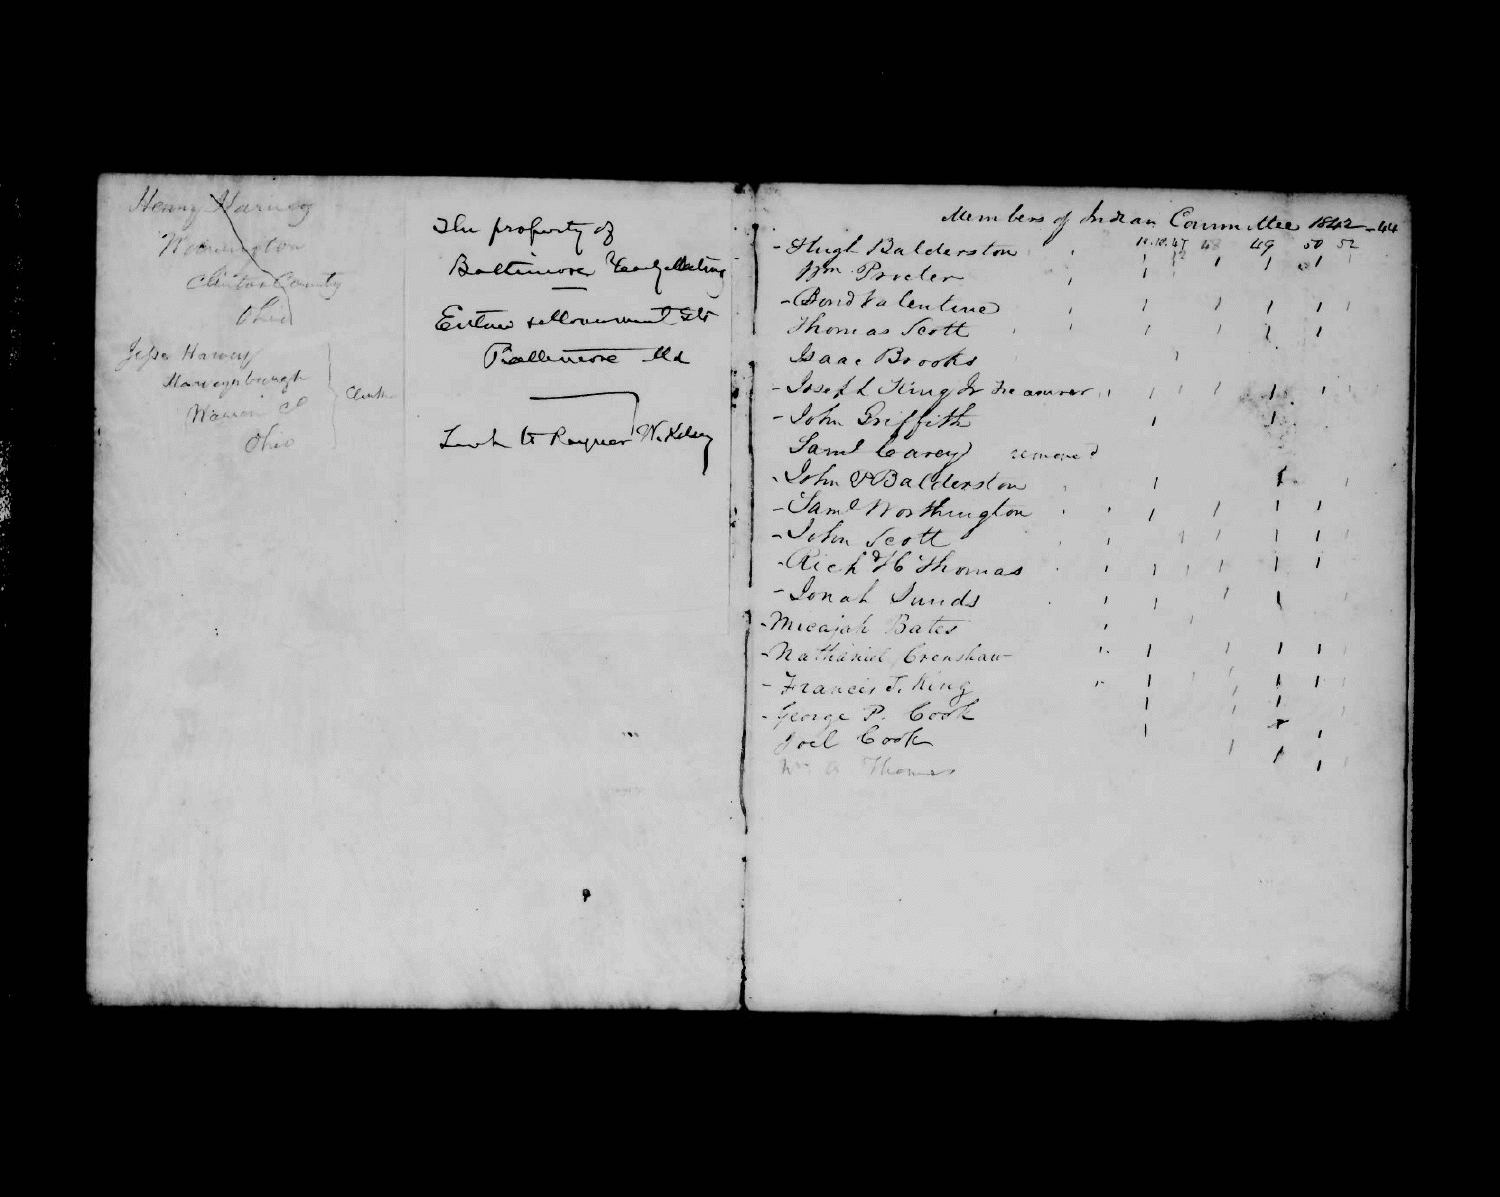 Henry Harvey
Wilmington
Clinton County
Ohio
Jesse Harvey
Harveysburgh
Warren Co
Ohio
Clerk
The property of
Baltimore Yearly Meeting
Eutaw & Monument Sts
Baltimore Md
Rayner W. Kelsey
Members of Indian Committee 1842-44
47 48 49 50 52
- Hugh Balderston
Wm Procter
- Bond Valentine
Thomas Scott
Isaac Brooks
- Joseph King Jr Treasurer
- John Griffith
Saml Carey removed
- John P Balderston
- Saml Worthington
- John Scott
- Richd H Thomas
- Jonah Sands
- Micajah Bates
- Nathaniel Crenshaw
- Francis T. King
- George P. Cook
Joel Cook
Wm A Thomas